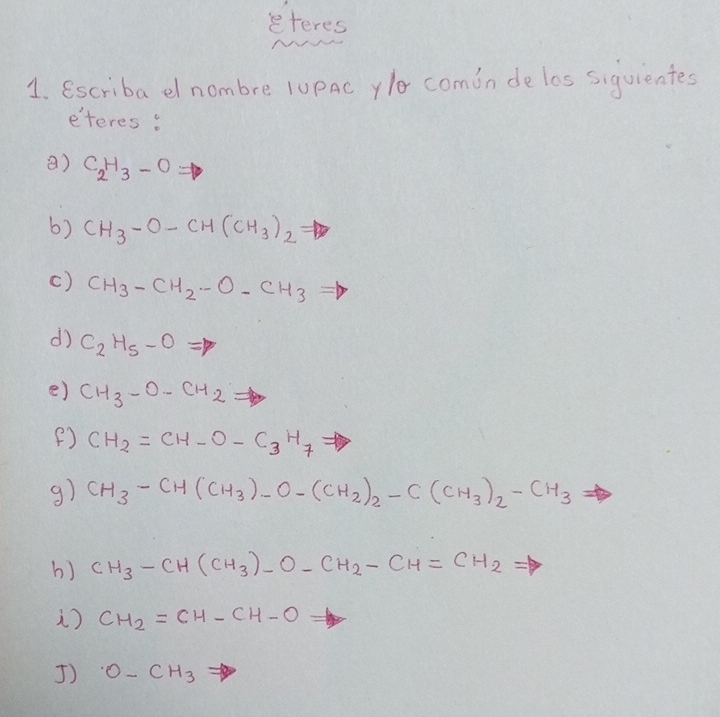 éteres
1. Escriba el nombre IUPAC y/o común de los siguientes
éteres :
a) C₂H₃ - O ⇒
b) CH₃ - O - CH (CH₃)₂ ⇒
c) CH₃ - CH₂ - O - CH₃ ⇒
d) C₂ H₅ - O ⇒
e) CH₃ - O - CH₂ ⇒
f) CH₂ = CH - O - C₃ H₇ ⇒
g) CH₃ - CH (CH₃) - O - (CH₂)₂ - C (CH₃)₂ - CH₃ ⇒
h) CH₃ - CH (CH₃) - O - CH₂ - CH = CH₂ ⇒
i) CH₂ = CH - CH - O ⇒
J) O - CH₃ ⇒